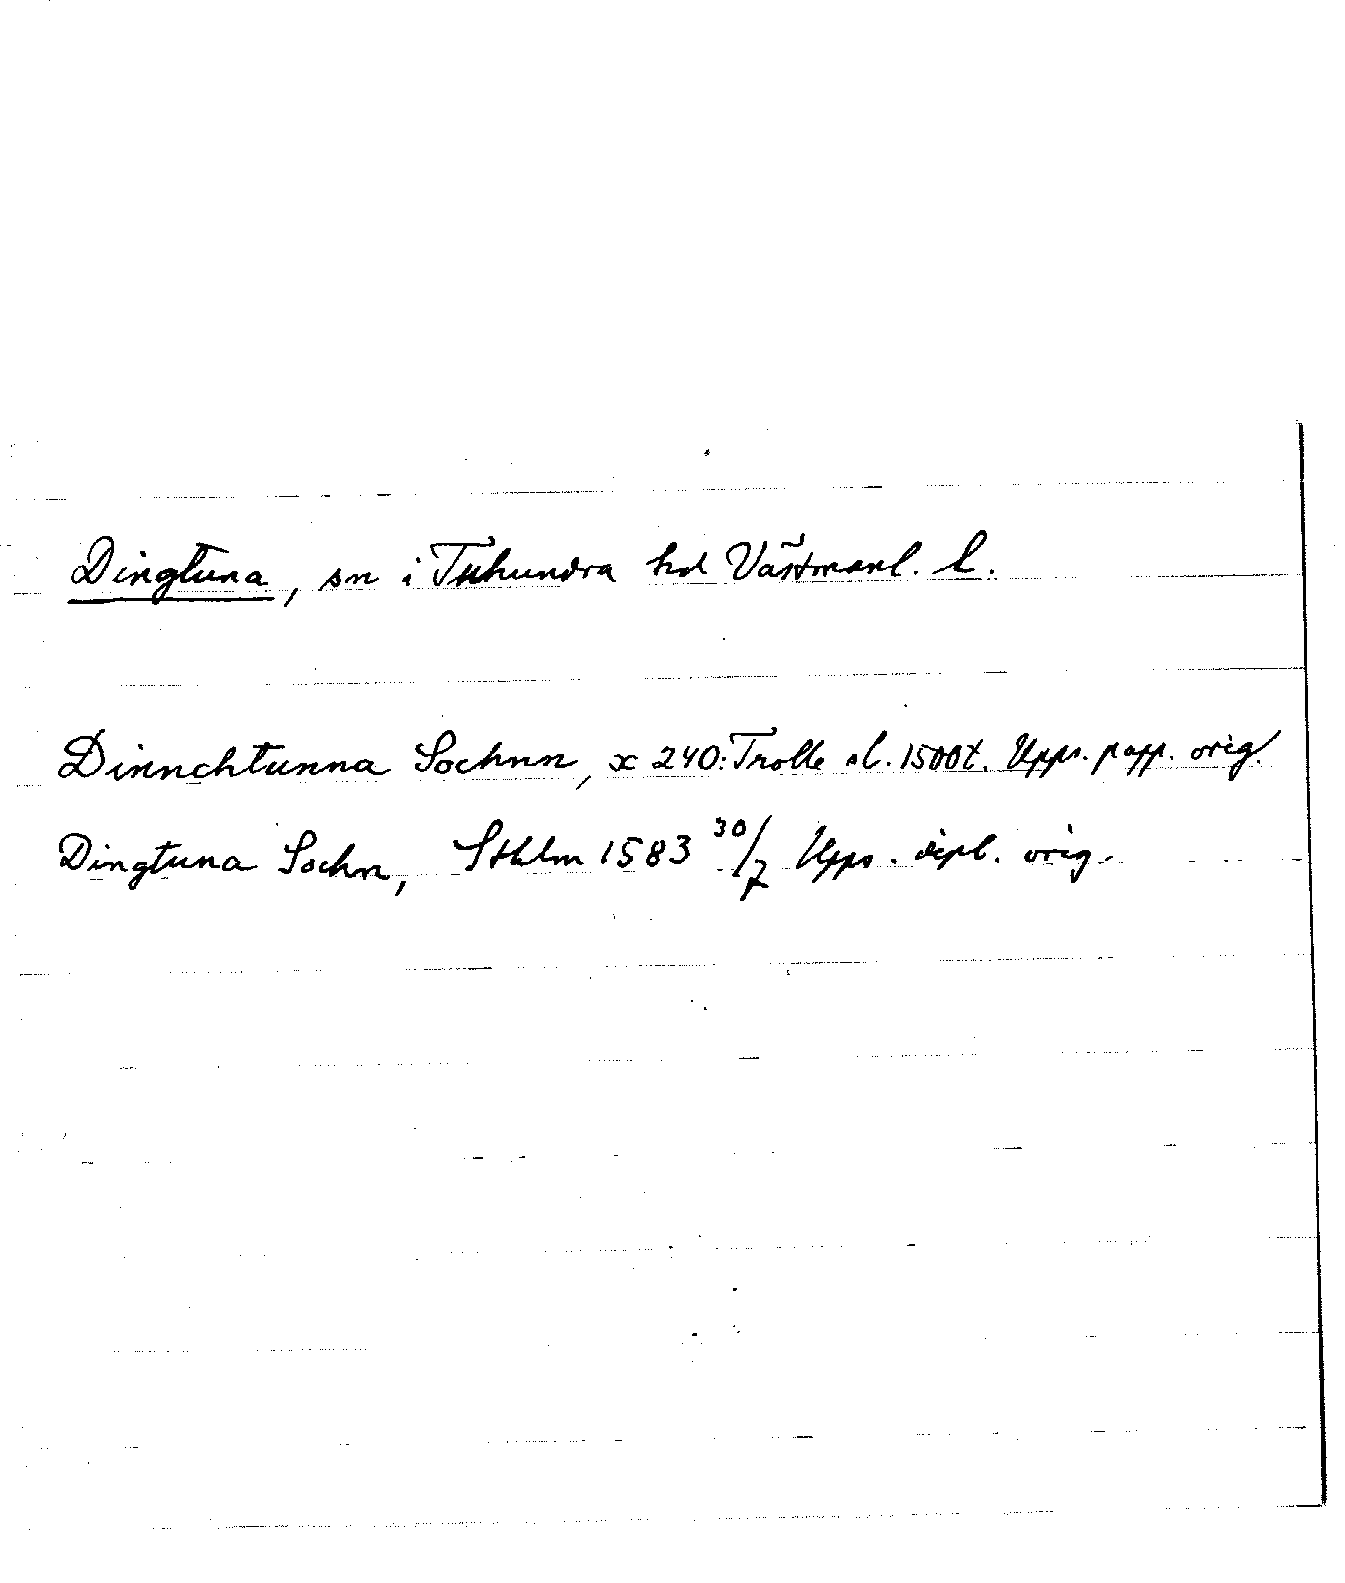 Dingtuna, sn i Tuhundra hd Västmanl. l.
Dinnchtunna Sochnn, x 240: Trolle sl. 1500t. Upps. papp. orig.
Dingtuna Sochn, Sthlm 1583 30/7 Upps. dipl. orig.